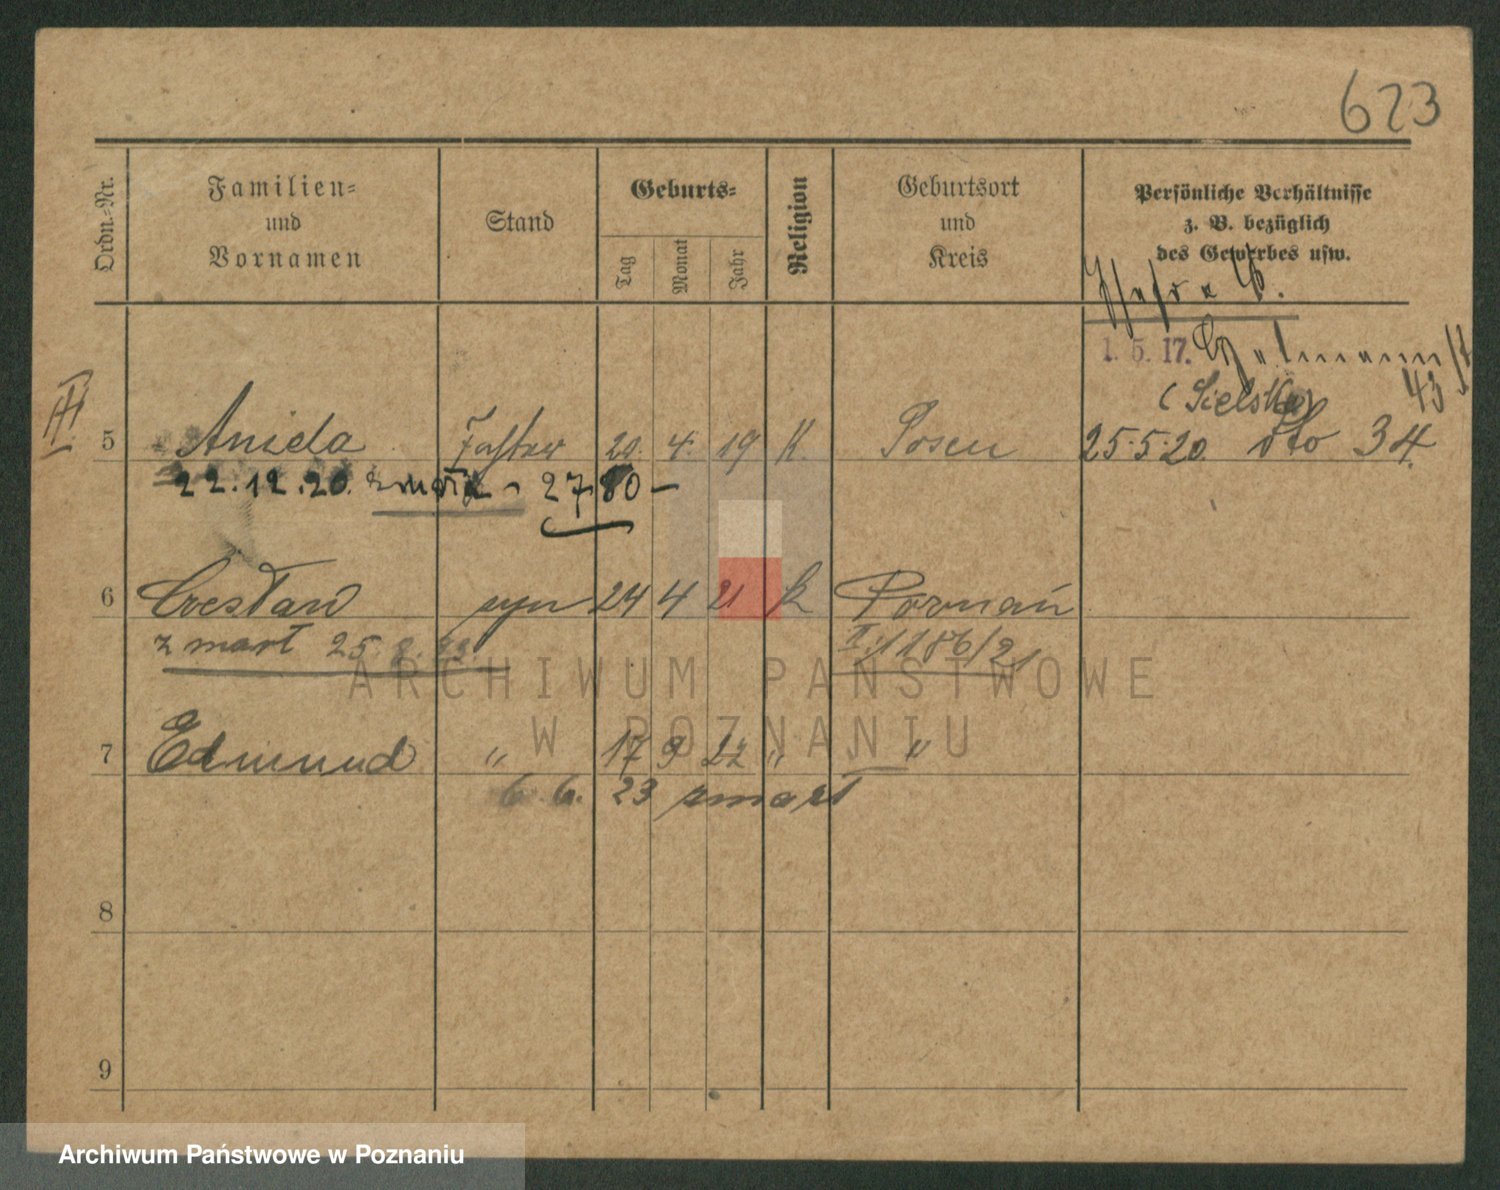 623
Ordn.=Nr.
Familien=
und
Vornamen
Stand
Geburts=
Tag
Monat
Jahr
Religion
Geburtsort
und
Kreis
Persönliche Verhältnisse
z. B. bezüglich
des Gewerbes usw.
1. 5. 17.
43
(Sielska)
III
5 Aniela Tochter 20. 4. 19 K. Posen 25.5.20. dto 34.
22.12.20. zmarła - 2780 -
6 Czesław syn 24 4 21 k Poznań
zmarł 25.8.22. II. 1186/21
7 Edmund " 17 9 22 " "
6. 6. 23 zmarł
8
9
ARCHIWUM PAŃSTWOWE
W POZNANIU
Archiwum Państwowe w Poznaniu